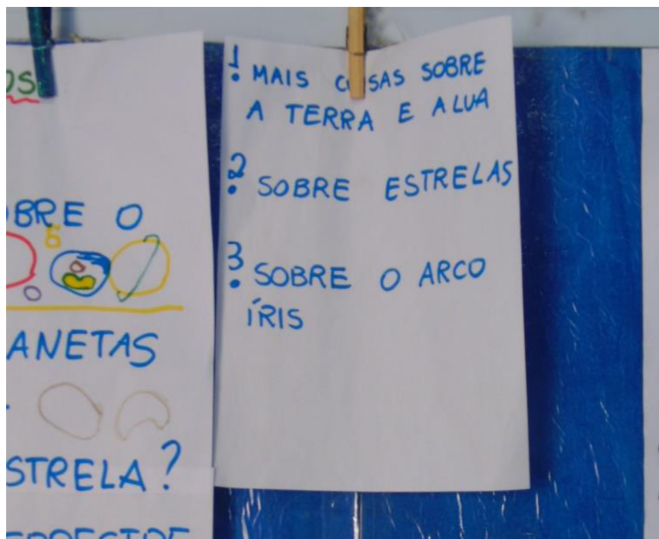 OS
BRE O
ANETAS
STRELA?
1. MAIS COISAS SOBRE
A TERRA E A LUA
2. SOBRE ESTRELAS
3. SOBRE O ARCO
ÍRIS